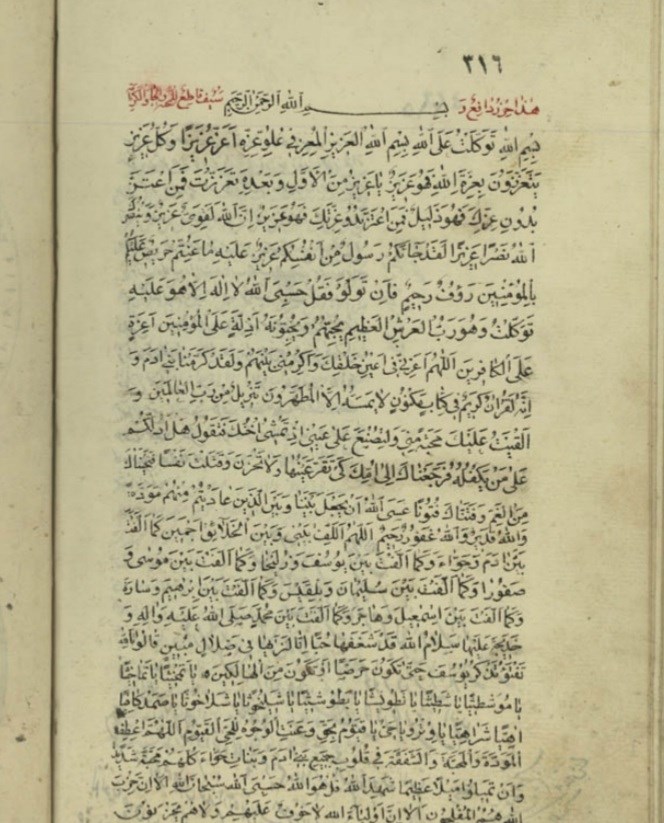 ٣١٦
هذا حرز دافع و بسم الله الرحمن الرحيم سيف قاطع
بسم الله توكلت على الله بسم الله العزيز المعز في علو عزه اعز عزيزا وكل عزيز
يتعززون بعزة الله فهو عزيز يا عزيز من الاول وبعده تعززت فمن اعتز
بدون عزك فهو ذليل فمن اعتز بعزتك فهو عزيز ان الله لقوي عزيز وينصرك
الله نصرا عزيزا لقد جائكم رسول من انفسكم عزيز عليه ما عنتم حريص عليكم
بالمؤمنين رؤف رحيم فان تولوا فقل حسبي الله لا اله الا هو عليه
توكلت وهو رب العرش العظيم يحبهم ويحبونه اذلة على المؤمنين اعزة
على الكافرين اللهم اعزني في اعين خلقك واكرمني بينهم ولقد كرمنا بني ادم و
انه لقران كريم في كتاب مكنون لا يمسه الا المطهرون تنزيل من رب العالمين و
القيت عليك محبة مني ولتصنع على عيني اذ تمشي اختك فتقول هل ادلكم
على من يكفله فرجعناك الى امك كي تقر عينها ولا تحزن وقتلت نفسا فنجيناك
من الغم وفتناك فتونا عسى الله ان يجعل بيننا وبين الذين عاديتم منهم مودة
والله قدير والله غفور رحيم اللهم الف بيني وبين الخلايق اجمعين كما الفت
بين ادم وحواء وكما الفت بين يوسف وزليخا وكما الفت بين موسى و
صفورا وكما الفت بين سليمان وبلقيس وكما الفت بين ابرهيم وسارة
وكما الفت بين اسمعيل وهاجر وكما الفت بين محمد صلى الله عليه واله و
خديجة عليها سلام الله قد شغفها حبا انا لنريها في ضلال مبين قالوا تالله
تفتؤ تذكر يوسف حتى تكون حرضا او تكون من الهالكين
اهيا شراهيا يا حي يا قيوم بحق وعنت الوجوه للحي القيوم اللهم اعطف
المودة والمحبة والشفقة في قلوب جميع بني ادم وبنات حواء كلهم محبة شديدة
وان تميلوا ميلا عظيما شهد الله قل هو الله حسبي الله سبحان الله الا ان حزب
الله هم المفلحون الا ان اولياء الله لا خوف عليهم ولا هم يحزنون